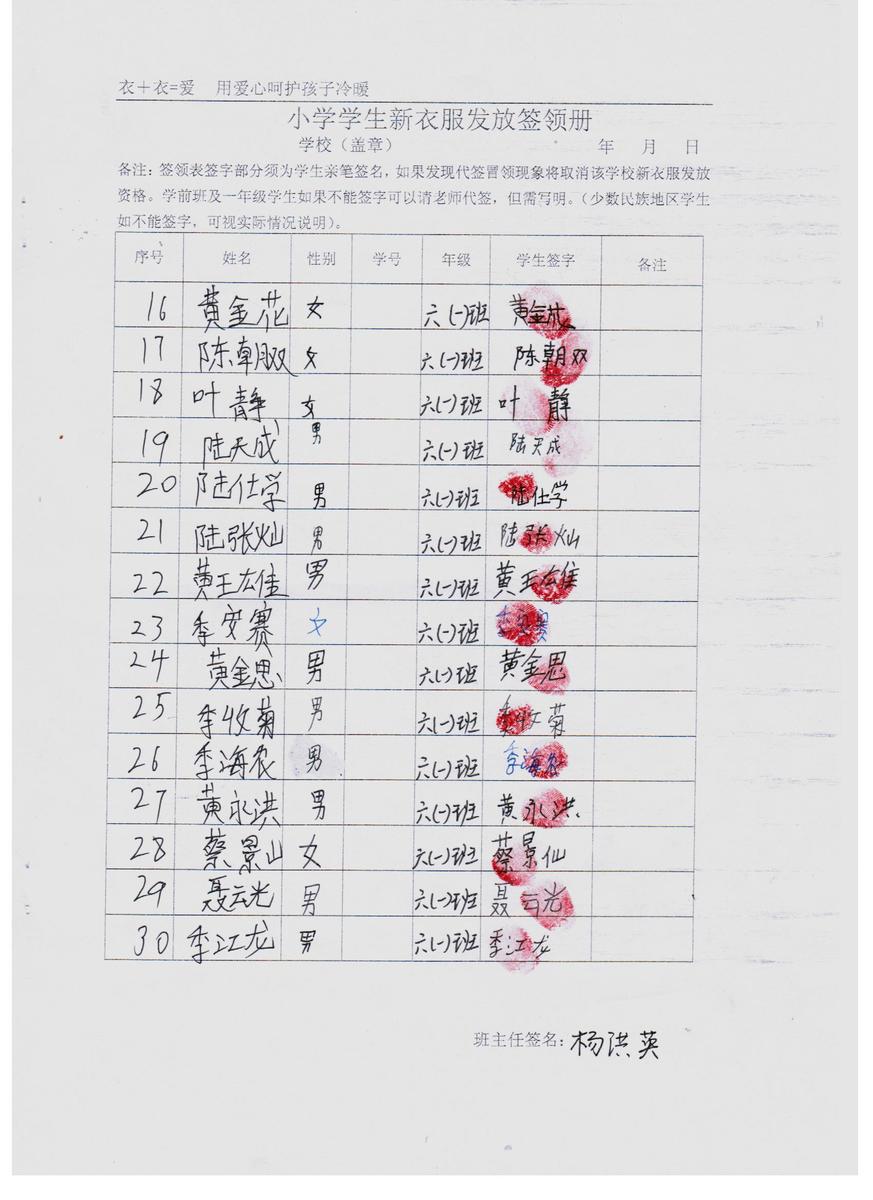 衣+衣=爱 用爱心呵护孩子冷暖
小学学生新衣服发放签领册
学校（盖章） 年 月 日
备注：签领表签字部分须为学生亲笔签名，如果发现代签冒领现象将取消该学校新衣服发放
资格。学前班及一年级学生如果不能签字可以请老师代签，但需写明。（少数民族地区学生
如不能签字，可视实际情况说明）。
序号 姓名 性别 学号 年级 学生签字 备注
16 黄金花 女 六(一)班 黄金花
17 陈朝双 女 六(一)班 陈朝双
18 叶静 女 六(一)班 叶静
19 陆天成 男 六(一)班 陆天成
20 陆仕学 男 六(一)班 陆仕学
21 陆张灿 男 六(一)班 陆张灿
22 黄王左佳 男 六(一)班 黄王左佳
23 季安赛 女 六(一)班 季安赛
24 黄金思 男 六(一)班 黄金思
25 季收菊 男 六(一)班 季收菊
26 季海农 男 六(一)班 季海农
27 黄永洪 男 六(一)班 黄永洪
28 蔡景山 女 六(一)班 蔡景仙
29 聂云光 男 六(一)班 聂云光
30 季江龙 男 六(一)班 季江龙
班主任签名：杨洪英